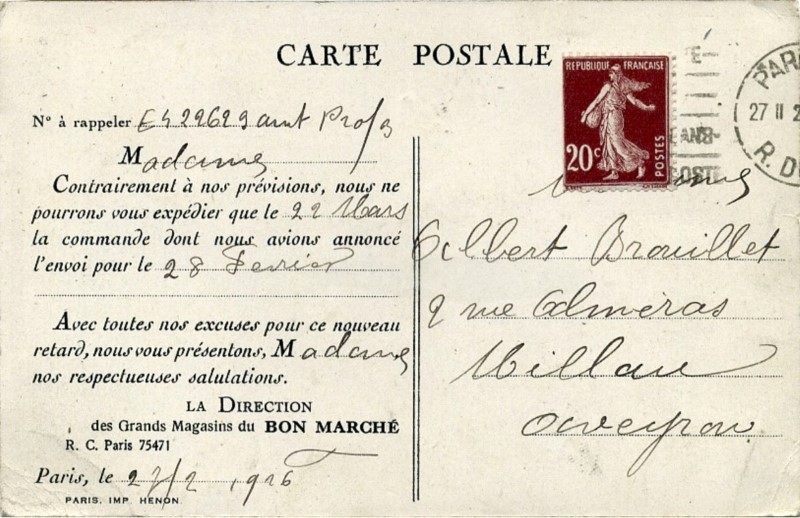 CARTE POSTALE
N° à rappeler E429629 amt Prof 3
Madame
Contrairement à nos prévisions, nous ne
pourrons vous expédier que le 22 Mars
la commande dont nous avions annoncé
l'envoi pour le 28 Fevrier
Avec toutes nos excuses pour ce nouveau
retard, nous vous présentons, Madame
nos respectueuses salutations.
LA DIRECTION
des Grands Magasins du BON MARCHÉ
R. C. Paris 75471
Paris, le 27/2 1926
PARIS, IMP HENON
REPUBLIQUE FRANÇAISE
20c
POSTES
PARI
27 II 2
R. D
Albert Brouillet
9 rue Alméras
Millau
Aveyron